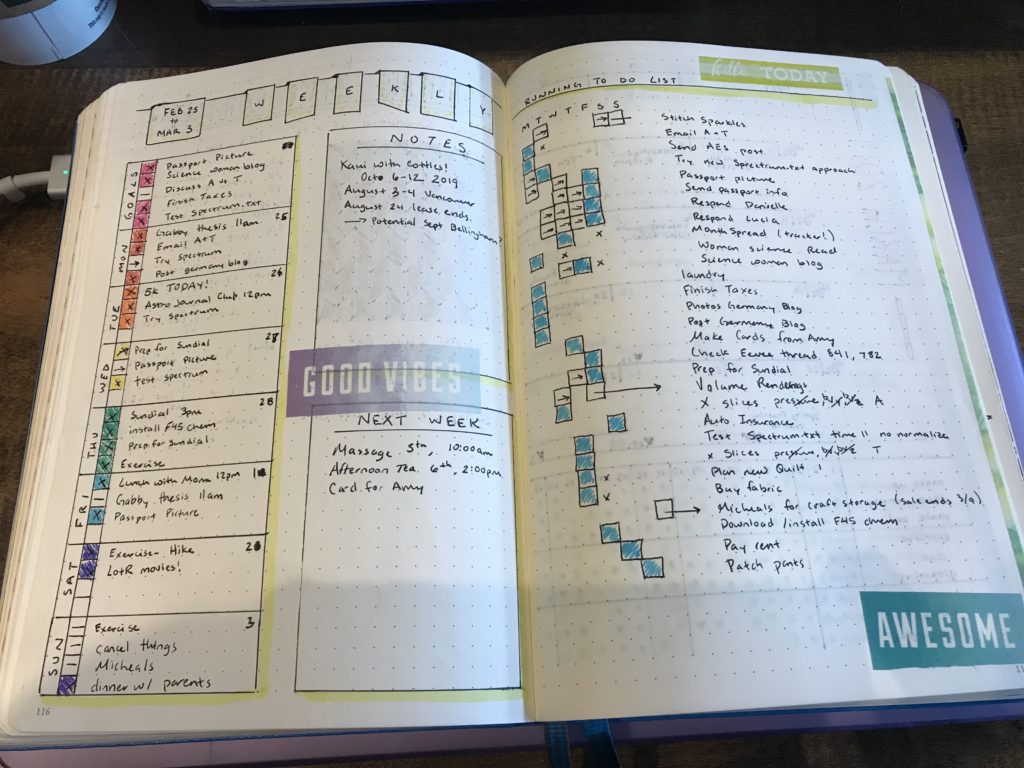 FEB 25
to
MAR 3
WEEKLY
GOALS
Passport Picture
Science woman blog
Discuss A vs T
Finish Taxes
Test Spectrum.txt
MON
25
Gabby thesis 11am
Email A+T
Try spectrum
Post germany blog
TUE
26
5K TODAY!
Astro Journal Club 12pm
Try Spectrum
WED
Prep for Sundial
Passport Picture
test spectrum
THU
28
Sundial 3pm
install F45 chem
Prep for Sundial
Exercise
FRI
Lunch with Moma 12pm
Gabby thesis 11am
Passport Picture
SAT
Exercise - Hike
LotR movies!
SUN
3
Exercise
cancel things
Micheals
dinner w/ parents
116
NOTES
Kaui with Cottles!
Octo 6-12, 2019
August 3-4 Vancouver
August 24 lease ends.
→ Potential Sept Bellingham?
GOOD VIBES
NEXT WEEK
Massage 5th, 10:00am
Afternoon Tea. 6th, 2:00pm
Card for Amy
hello TODAY
RUNNING TO DO LIST
M T W T F S S
Stitch Sparkles
Email A+T
Send AES post
Try new Spectrum.txt approach
Passport picture
Send passport info
Respond Danielle
Respond Lucia
Month Spread (tracker!)
Woman science Read
Science women blog
laundry
Finish Taxes
Photos Germany Blog
Post Germany Blog
Make Cards from Amy
Check Eewee thread 841, 782
Prep for Sundial
Volume Renderings
x slices A
Auto Insurance
Test Spectrum.txt time II no normalize
x Slices T
Plan new Quilt !
Buy fabric
Micheals for craft storage (sale ends 3/9)
Download /install F45 chem
Pay rent
Patch pants
AWESOME